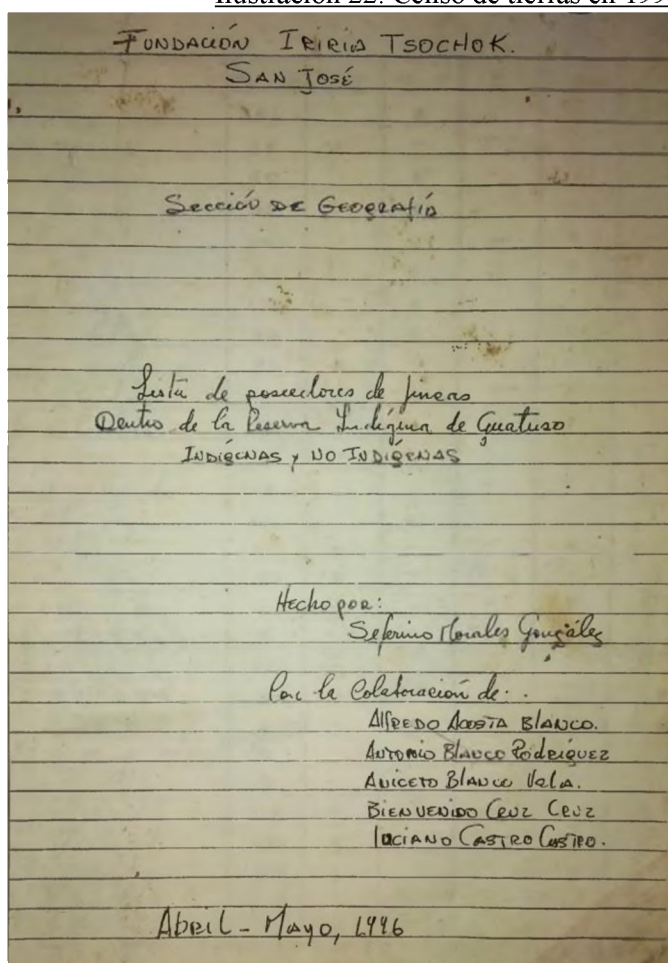 Ilustración 22: Censo de tierras en 199
FUNDACIÓN IRIRIA TSOCHOK.
SAN JOSÉ
SECCIÓN DE GEOGRAFÍA
Lista de poseedores de fincas
Dentro de la Reserva Indígena de Guatuso
INDÍGENAS y NO INDÍGENAS
Hecho por:
Seferino Morales González
Con la Colaboración de:.
Alfredo Acosta Blanco.
Antonio Blanco Rodríguez
Aniceto Blanco Vela.
Bienvenido Cruz Cruz
Luciano Castro Castro.
Abril - Mayo, 1996